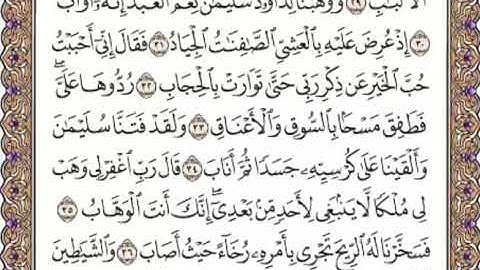 ٱلْأَلْبَـٰبِ ٢٩ وَوَهَبْنَا لِدَاوُۥدَ سُلَيْمَـٰنَ نِعْمَ ٱلْعَبْدُ إِنَّهُۥٓ أَوَّابٌ
٣٠ إِذْ عُرِضَ عَلَيْهِ بِٱلْعَشِىِّ ٱلصَّـٰفِنَـٰتُ ٱلْجِيَادُ ٣١ فَقَالَ إِنِّىٓ أَحْبَبْتُ
حُبَّ ٱلْخَيْرِ عَن ذِكْرِ رَبِّى حَتَّىٰ تَوَارَتْ بِٱلْحِجَابِ ٣٢ رُدُّوهَا عَلَىَّۖ
فَطَفِقَ مَسْحًۢا بِٱلسُّوقِ وَٱلْأَعْنَاقِ ٣٣ وَلَقَدْ فَتَنَّا سُلَيْمَـٰنَ
وَأَلْقَيْنَا عَلَىٰ كُرْسِيِّهِۦ جَسَدًا ثُمَّ أَنَابَ ٣٤ قَالَ رَبِّ ٱغْفِرْ لِى وَهَبْ
لِى مُلْكًا لَّا يَنۢبَغِى لِأَحَدٍ مِّنۢ بَعْدِىٓۖ إِنَّكَ أَنتَ ٱلْوَهَّابُ ٣٥
فَسَخَّرْنَا لَهُ ٱلرِّيحَ تَجْرِى بِأَمْرِهِۦ رُخَآءً حَيْثُ أَصَابَ ٣٦ وَٱلشَّيَـٰطِينَ